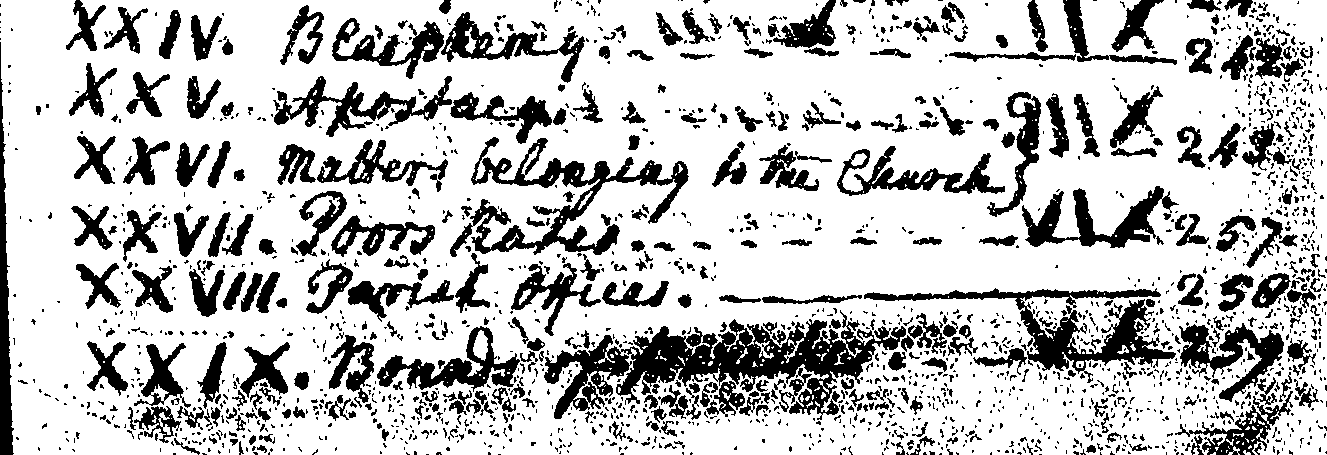 XXIV. Blasphemy. 242.
XXV. Apostacy.
XXVI. Matters belonging to the Church} 243.
XXVII. Poors Rates. 257.
XXVIII. Parish Offices. 258.
XXIX. Bounds of Parishes. 259.